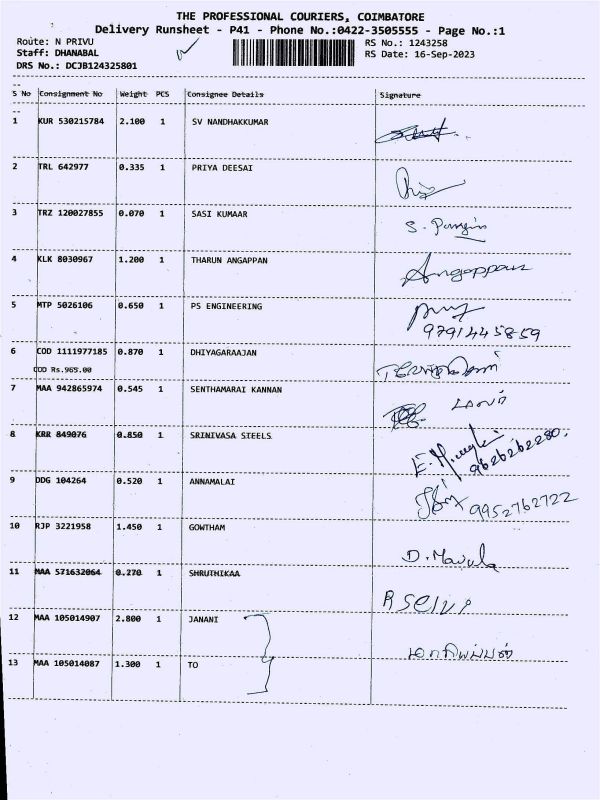 THE PROFESSIONAL COURIERS, COIMBATORE
Delivery Runsheet - P41 - Phone No.:0422-3505555 - Page No.:1
Route: N PRIVU RS No.: 1243258
Staff: DHANABAL RS Date: 16-Sep-2023
DRS No.: DCJB124325801
S No Consignment No Weight PCS Consignee Details Signature
1 KUR 530215784 2.100 1 SV NANDHAKKUMAR
2 TRL 642977 0.335 1 PRIYA DEESAI
3 TRZ 120027855 0.070 1 SASI KUMAAR S.
4 KLK 8030967 1.200 1 THARUN ANGAPPAN Angappan
5 MTP 5026106 0.650 1 PS ENGINEERING
9791445859
6 COD 1111977185 0.870 1 DHIYAGARAAJAN
COD Rs.965.00
7 MAA 942865974 0.545 1 SENTHAMARAI KANNAN
8 KRR 849076 0.850 1 SRINIVASA STEELS
9626262280.
9 DDG 104264 0.520 1 ANNAMALAI
9952762722
10 RJP 3221958 1.450 1 GOWTHAM D.
11 MAA 571632064 0.270 1 SHRUTHIKAA R Selvi
12 MAA 105014907 2.800 1 JANANI
13 MAA 105014087 1.300 1 TO